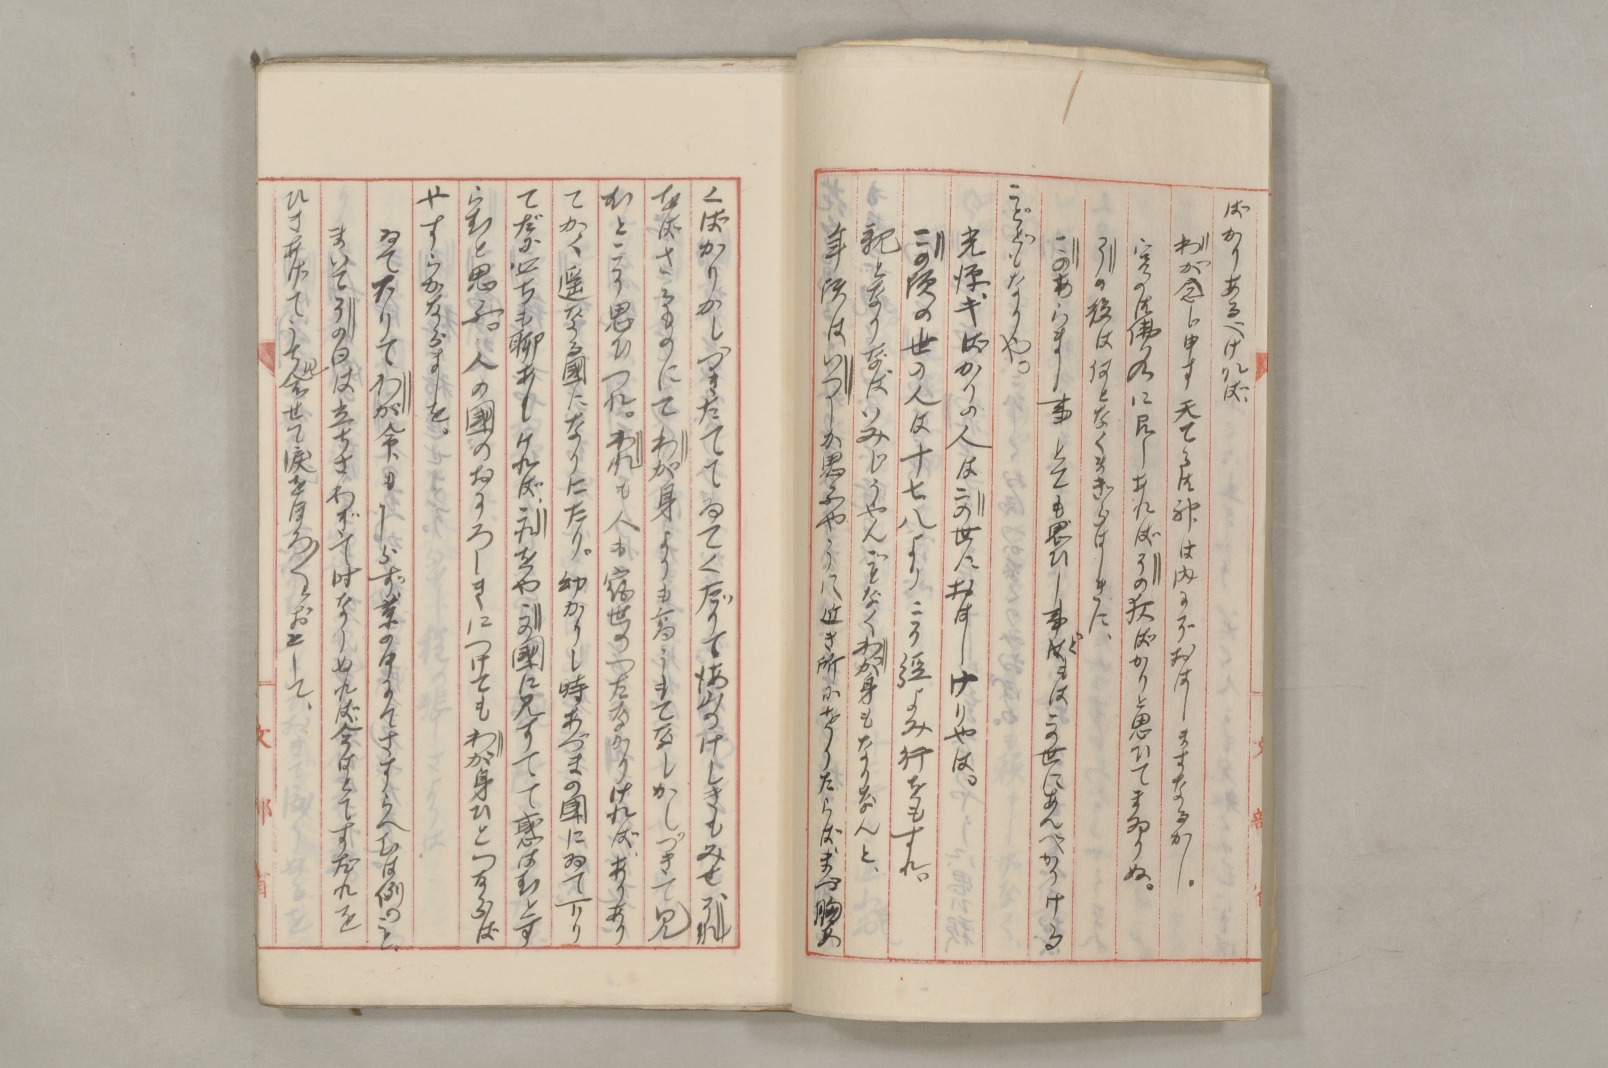 ばかりあるべければ、
わが念じ申す天てる御神は内にぞおはしますなるかし。
実の御佛名に召しあれば、その夜ばかりと思ひてまゐりぬ。
その後は何となくまぎらはしきに、
このあらまし事とても思ひし事どもはこの世にあんべかりける
ことどもなりや。
光源氏ばかりの人はこの世におはしけりやは。
この頃の世の人は十七八よりこそ経よみ行をもすれ。
親となりなばいみじうやんごとなくわが身もなりなんと、
年頃はいつしか思ふやうに近き所になりたらばまづ胸あ
くばかりかしづきたてゝゐてくだりて海山のけしきもみせ、それ
をばさるものにてわが身よりも高うもてなしかしづきて見
むとこそ思ひつれ。われも人も宿世のつたなかりければありあり
てかく遥なる國になりにたり。幼かりし時あづまの国にゐて下り
てだに心ちも聊あしければ、これをや、この國に見すてゝ惑はむとす
らむと思ふ。人の國のおそろしきにつけてもわが身ひとつならば
やすらかならましを。
ゐてたりてわが命もしらず京の中にてさすらへむは例のこと、
まいてその日は立ちさわぎて時なりぬれば今はとてすだれを
ひきあげてうち見合せて涙をほろ〳〵とおとして、
文部省